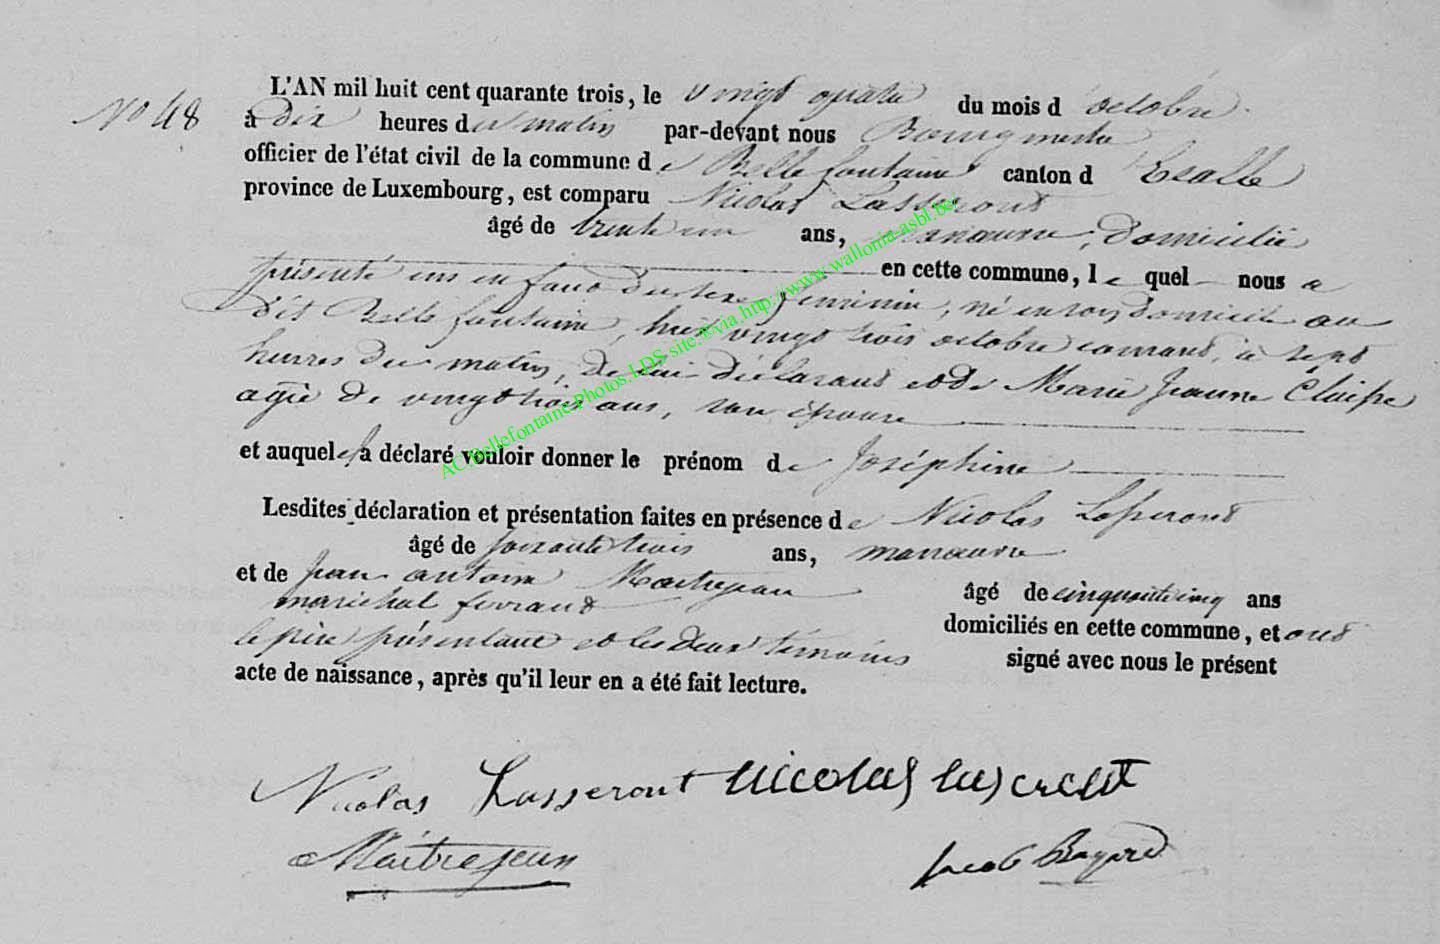 No 48
L'AN mil huit cent quarante trois, le vingt quatre du mois d'octobre
à Dix heures du matin par-devant nous Bourgmestre
officier de l'état civil de la commune de Bellefontaine canton d'Etalle
province de Luxembourg, est comparu Nicolas Lasseront
âgé de trente un ans, manœuvre, domicilié
en cette commune, le quel nous a
présenté un enfant du sexe féminin, né en son domicile au
dit Bellefontaine, hier vingt trois octobre courant, à sept
heures du matin, de lui déclarant et de Marie Jeanne
agée de vingt trois ans, son épouse
et auquel il a déclaré vouloir donner le prénom de Joséphine
Lesdites déclaration et présentation faites en présence de Nicolas
âgé de soixante trois ans, manœuvre
et de Jean antoine Maitrejean âgé de cinquante cinq ans
maréchal ferrant domiciliés en cette commune, et ont
le père présentant et les deux témoins signé avec nous le présent
acte de naissance, après qu'il leur en a été fait lecture.
Nicolas Lasseront Nicolas
Maitrejean Jacob Bayard
AC.Bellefontaine.Photos.LDS site:®via http://www.wallonia-asbl.be/